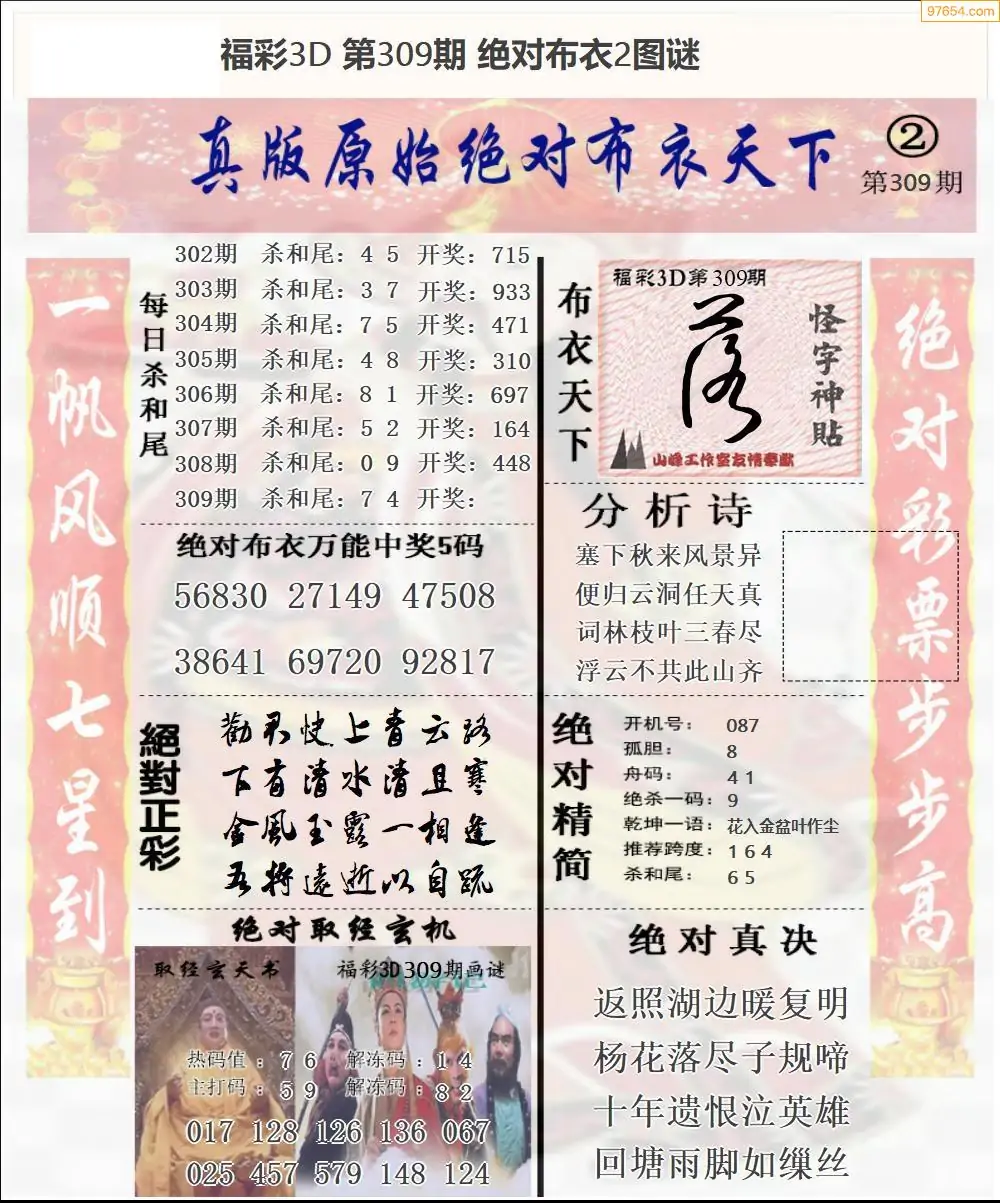 97654.com
福彩3D 第309期 绝对布衣2图谜
真版原始绝对布衣天下
②
第309期
一帆风顺七星到
每日杀和尾
302期 杀和尾：4 5 开奖：715
303期 杀和尾：3 7 开奖：933
304期 杀和尾：7 5 开奖：471
305期 杀和尾：4 8 开奖：310
306期 杀和尾：8 1 开奖：697
307期 杀和尾：5 2 开奖：164
308期 杀和尾：0 9 开奖：448
309期 杀和尾：7 4 开奖：
绝对布衣万能中奖5码
56830 27149 47508
38641 69720 92817
絕對正彩
勸君快上青云路
下有清水清且寒
金風玉露一相逢
吾将遠逝以自疏
绝对取经玄机
取经玄天书
福彩3D309期画谜
热码值：7 6 解冻码：1 4
主打码：5 9 解冻码：8 2
017 128 126 136 067
025 457 579 148 124
布衣天下
福彩3D第309期
落
怪字神貼
山峰工作室友情奉献
分析诗
塞下秋来风景异
便归云洞任天真
词林枝叶三春尽
浮云不共此山齐
绝对精简
开机号： 087
孤胆： 8
舟码： 4 1
绝杀一码：9
乾坤一语：花入金盆叶作尘
推荐跨度：1 6 4
杀和尾： 6 5
绝对真决
返照湖边暖复明
杨花落尽子规啼
十年遗恨泣英雄
回塘雨脚如缫丝
绝对彩票步步高